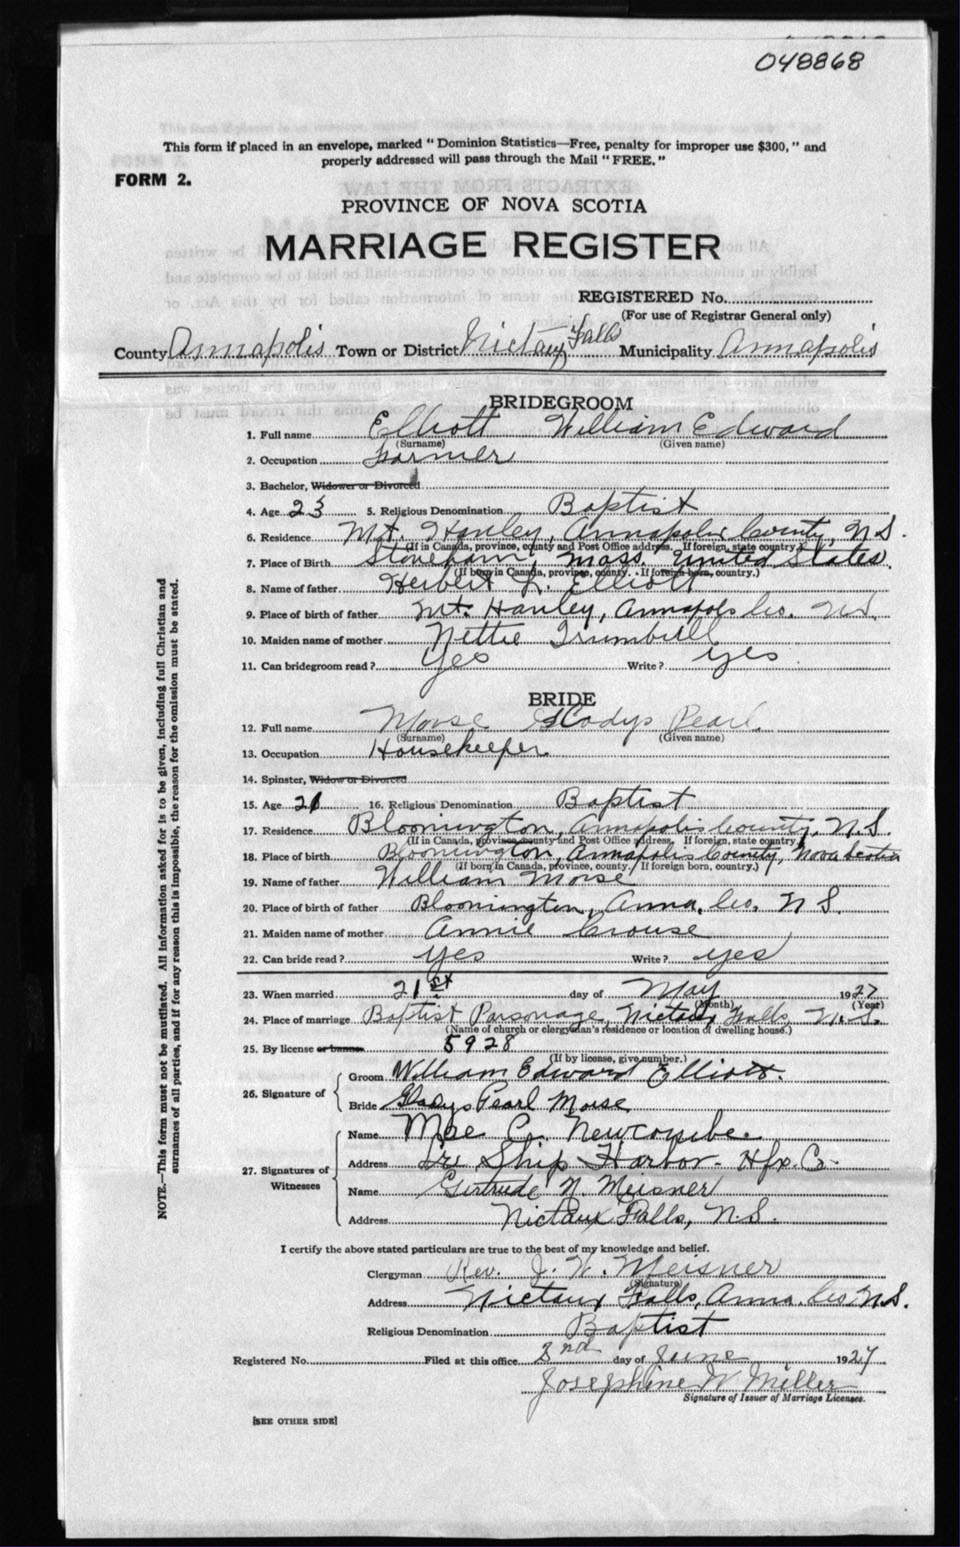 048868
This form if placed in an envelope, marked "Dominion Statistics—Free, penalty for improper use $300," and
properly addressed will pass through the Mail "FREE."
FORM 2.
PROVINCE OF NOVA SCOTIA
MARRIAGE REGISTER
REGISTERED No.
(For use of Registrar General only)
County Annapolis Town or District Nictaux Falls Municipality Annapolis
BRIDEGROOM
1. Full name Elliott William Edward
(Surname) (Given name)
2. Occupation Farmer
3. Bachelor, Widower or Divorced
4. Age 23 5. Religious Denomination Baptist
6. Residence Mt. Hanley, Annapolis County, N.S.
(If in Canada, province, county and Post Office address. If foreign, state country.)
7. Place of Birth Stoneham, Mass. United States
(If born in Canada, province, county. If foreign born, country.)
8. Name of father Herbert L. Elliott
9. Place of birth of father Mt. Hanley, Annapolis Co. N.S.
10. Maiden name of mother Nettie Trumbull
11. Can bridegroom read? Yes Write? yes
BRIDE
12. Full name Morse Gladys Pearl
(Surname) (Given name)
13. Occupation Housekeeper
14. Spinster, Widow or Divorced
15. Age 21 16. Religious Denomination Baptist
17. Residence Bloomington, Annapolis County, N.S.
(If in Canada, province, county and Post Office address. If foreign, state country.)
18. Place of birth Bloomington, Annapolis County, Nova Scotia
(If born in Canada, province, county. If foreign born, country.)
19. Name of father William Morse
20. Place of birth of father Bloomington, Anna. Co. N S.
21. Maiden name of mother Annie Crouse
22. Can bride read? yes Write? yes
23. When married 21st day of May 1927
(Month) (Year)
24. Place of marriage Baptist Parsonage, Nictaux Falls, N.S.
(Name of church or clergyman's residence or location of dwelling house.)
25. By license or banns 5928
(If by license, give number.)
26. Signature of Groom William Edward Elliott.
Bride Gladys Pearl Morse
27. Signatures of Witnesses
Name Mae C. Newcombe.
Address Lr. Ship Harbor - Hfx. Co.
Name Gertrude N. Meisner
Address Nictaux Falls, N.S.
I certify the above stated particulars are true to the best of my knowledge and belief.
Clergyman Rev. J. W. Meisner
(Signature)
Address Nictaux Falls, Anna. Co. N.S.
Religious Denomination Baptist
Registered No. Filed at this office 2nd day of June 1927
Josephine W. Miller
Signature of Issuer of Marriage Licenses.
[SEE OTHER SIDE]
NOTE.—This form must not be mutilated. All information asked for is to be given, including full Christian and
surnames of all parties, and if for any reason this is impossible, the reason for the omission must be stated.